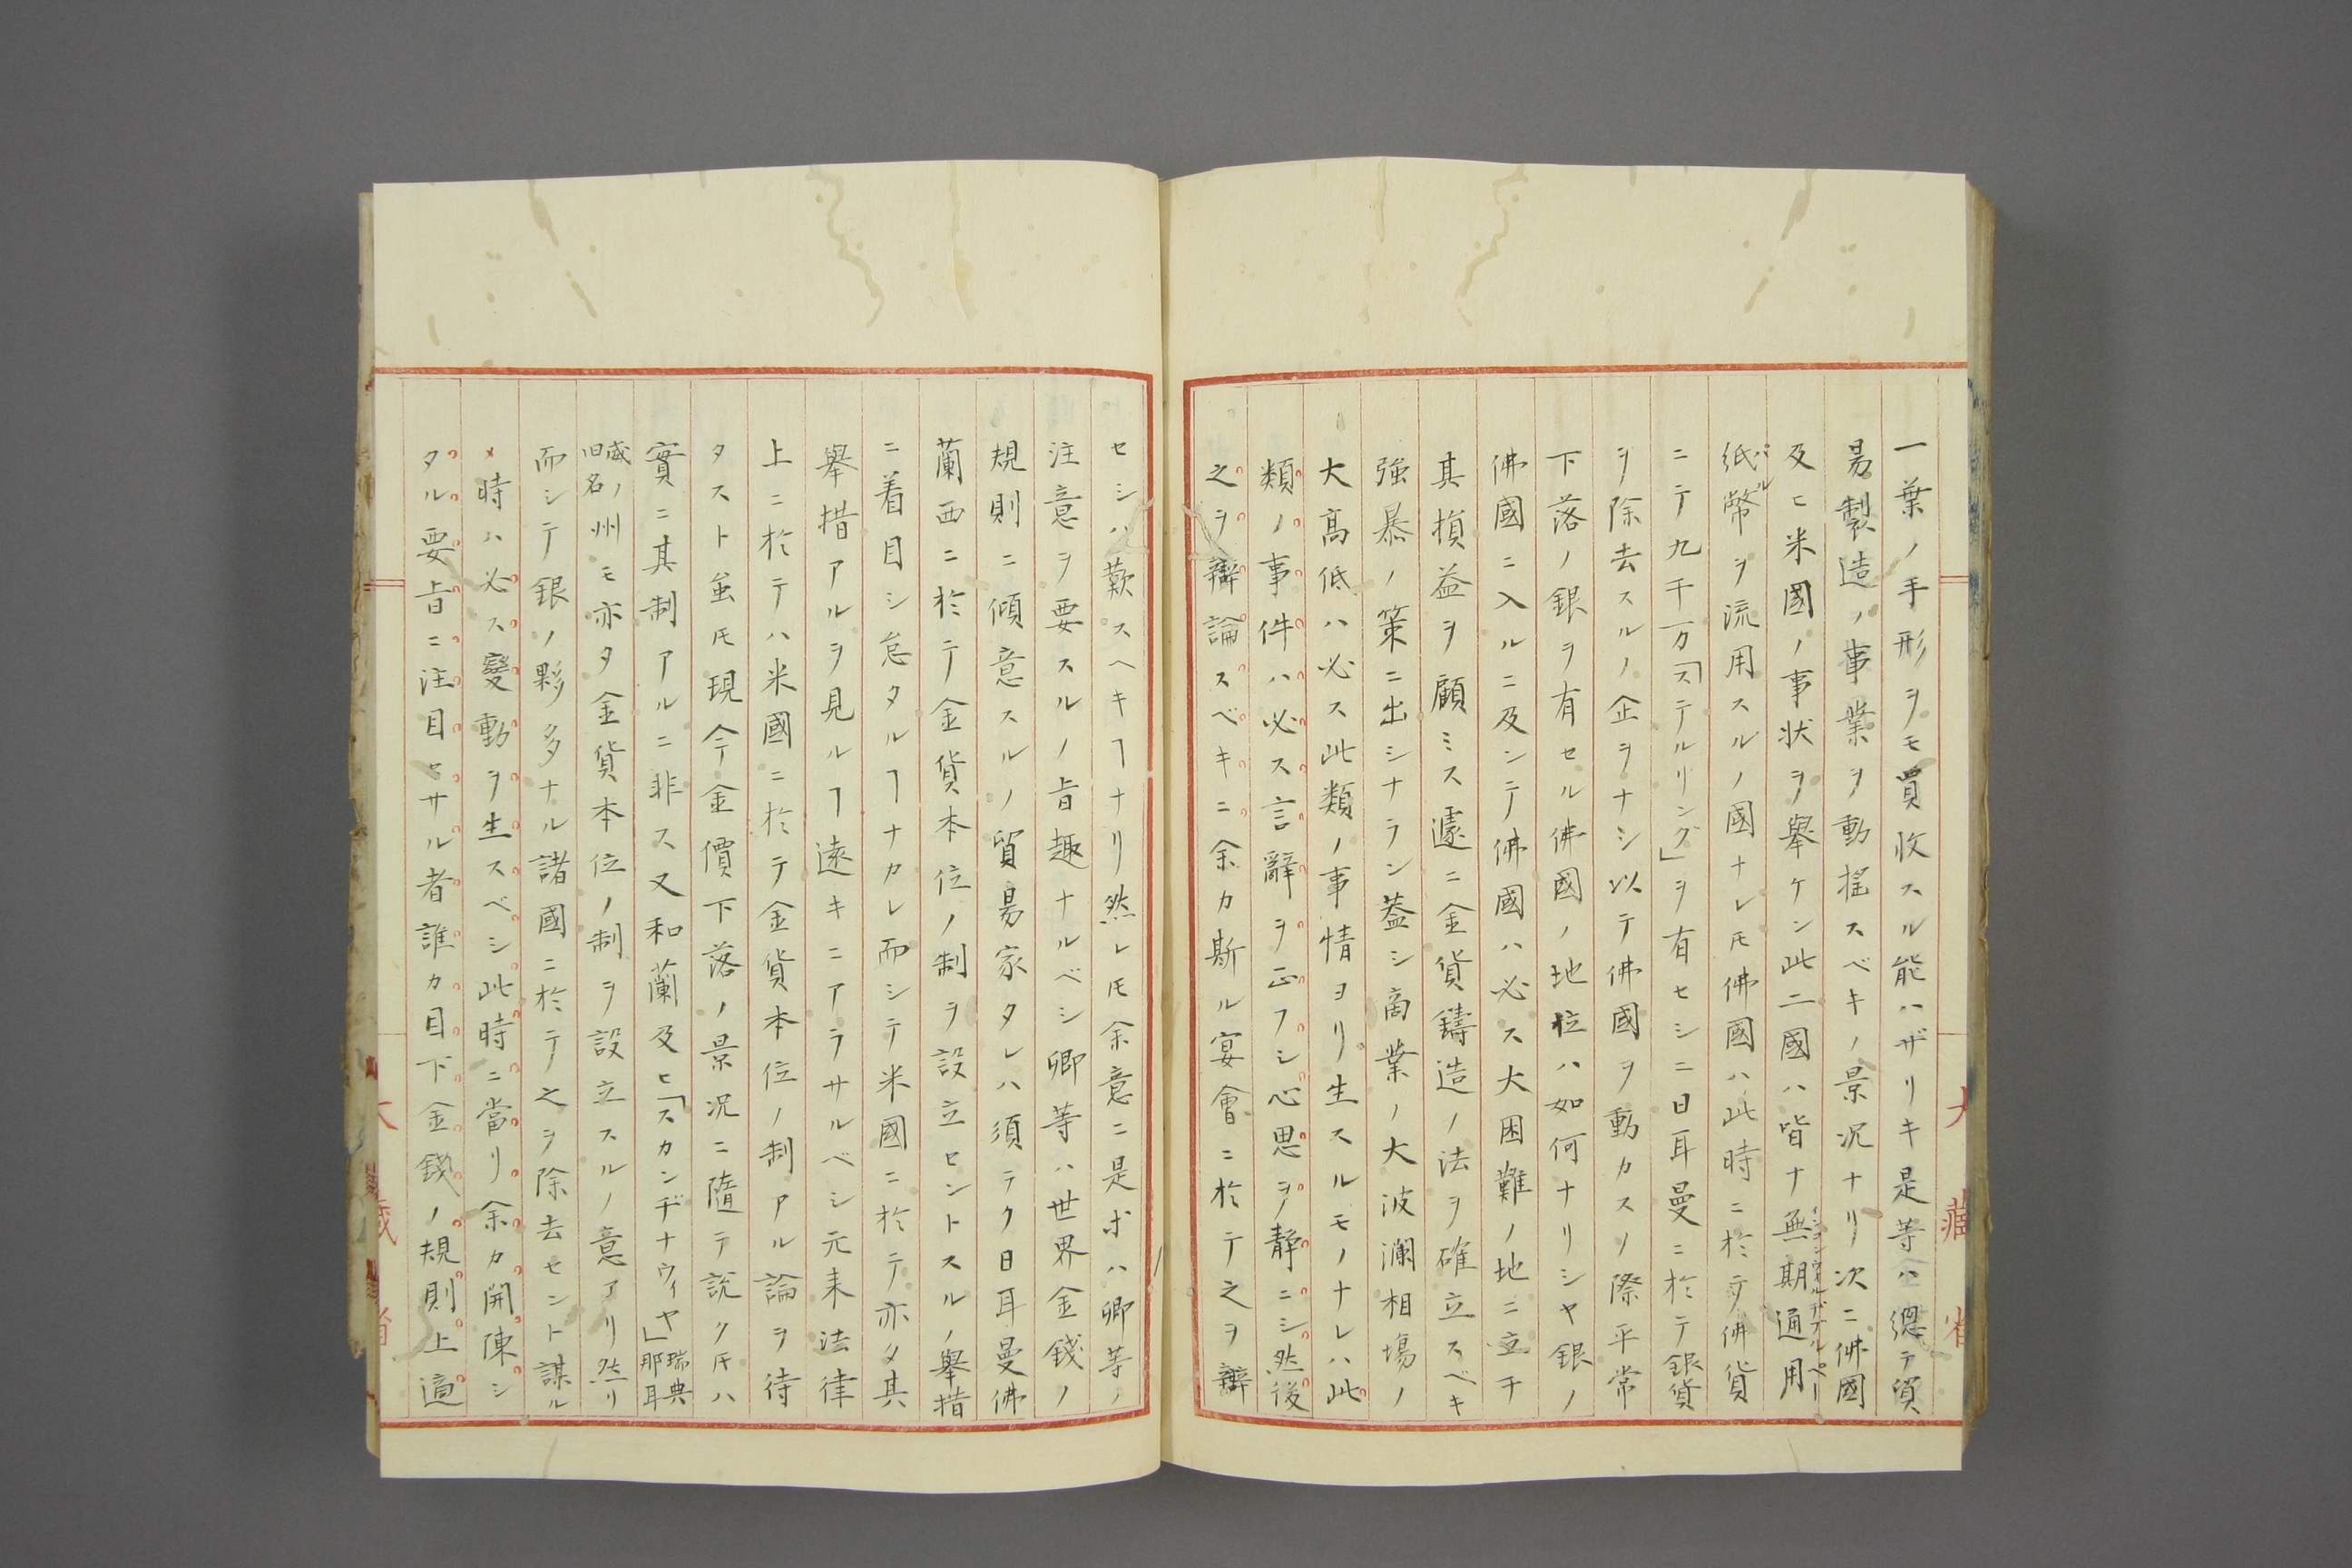 一葉ノ手形ヲモ買收スル能ハザリキ是等ハ總テ貿
易製造ノ事業ヲ動揺スベキノ景況ナリ次ニ佛國
及ヒ米國ノ事状ヲ擧ケン此二國ハ皆ナ無期通用
紙幣ヲ流用スルノ國ナレ𪜈佛國ハ此時ニ於テ佛貨
ニテ九千万「ステルリング」ヲ有セシニ日耳曼ニ於テ銀貨
ヲ除去スルノ企ヲナシ以テ佛國ヲ動カスノ際平常
下落ノ銀ヲ有セル佛國ノ地位ハ如何ナリシヤ銀ノ
佛國ニ入ルニ及ンテ佛國ハ必ス大困難ノ地ニ立チ
其損益ヲ顧ミス遽ニ金貨鑄造ノ法ヲ確立スベキ
強暴ノ策ニ出シナラン蓋シ商業ノ大波瀾相場ノ
大高低ハ必ス此類ノ事情ヨリ生スルモノナレハ此
類ノ事件ハ必ス言辭ヲ正フシ心思ヲ静ニシ然後
之ヲ辯論スベキニ余カ斯ル宴會ニ於テ之ヲ辯
セシハ歎スヘキヿナリ然レ𪜈余意ニ是ホハ卿等ノ
注意ヲ要スルノ旨趣ナルベシ卿等ハ世界金錢ノ
規則ニ傾意スルノ貿易家タレハ須テク日耳曼佛
蘭西ニ於テ金貨本位ノ制ヲ設立セントスルノ擧措
ニ着目シ怠タルヿナカレ而シテ米國ニ於テ亦タ其
擧措アルヲ見ルヿ遠キニアラサルベシ元来法律
上ニ於テハ米國ニ於テ金貨本位ノ制アル論ヲ待
タスト虽𪜈現今金價下落ノ景况ニ隨テ説ク𪜈ハ
實ニ其制アルニ非ス又和蘭及ヒ「スカンヂナウィヤ」瑞典那耳
威ノ旧名州モ亦タ金貨本位ノ制ヲ設立スルノ意アリ然リ
而シテ銀ノ夥多ナル諸國ニ於テ之ヲ除去セント謀ル
メ時ハ必ス變動ヲ生スベシ此時ニ當リ余カ開陳シ
タル要旨ニ注目セサル者誰カ目下金錢ノ規則上適
大藏省